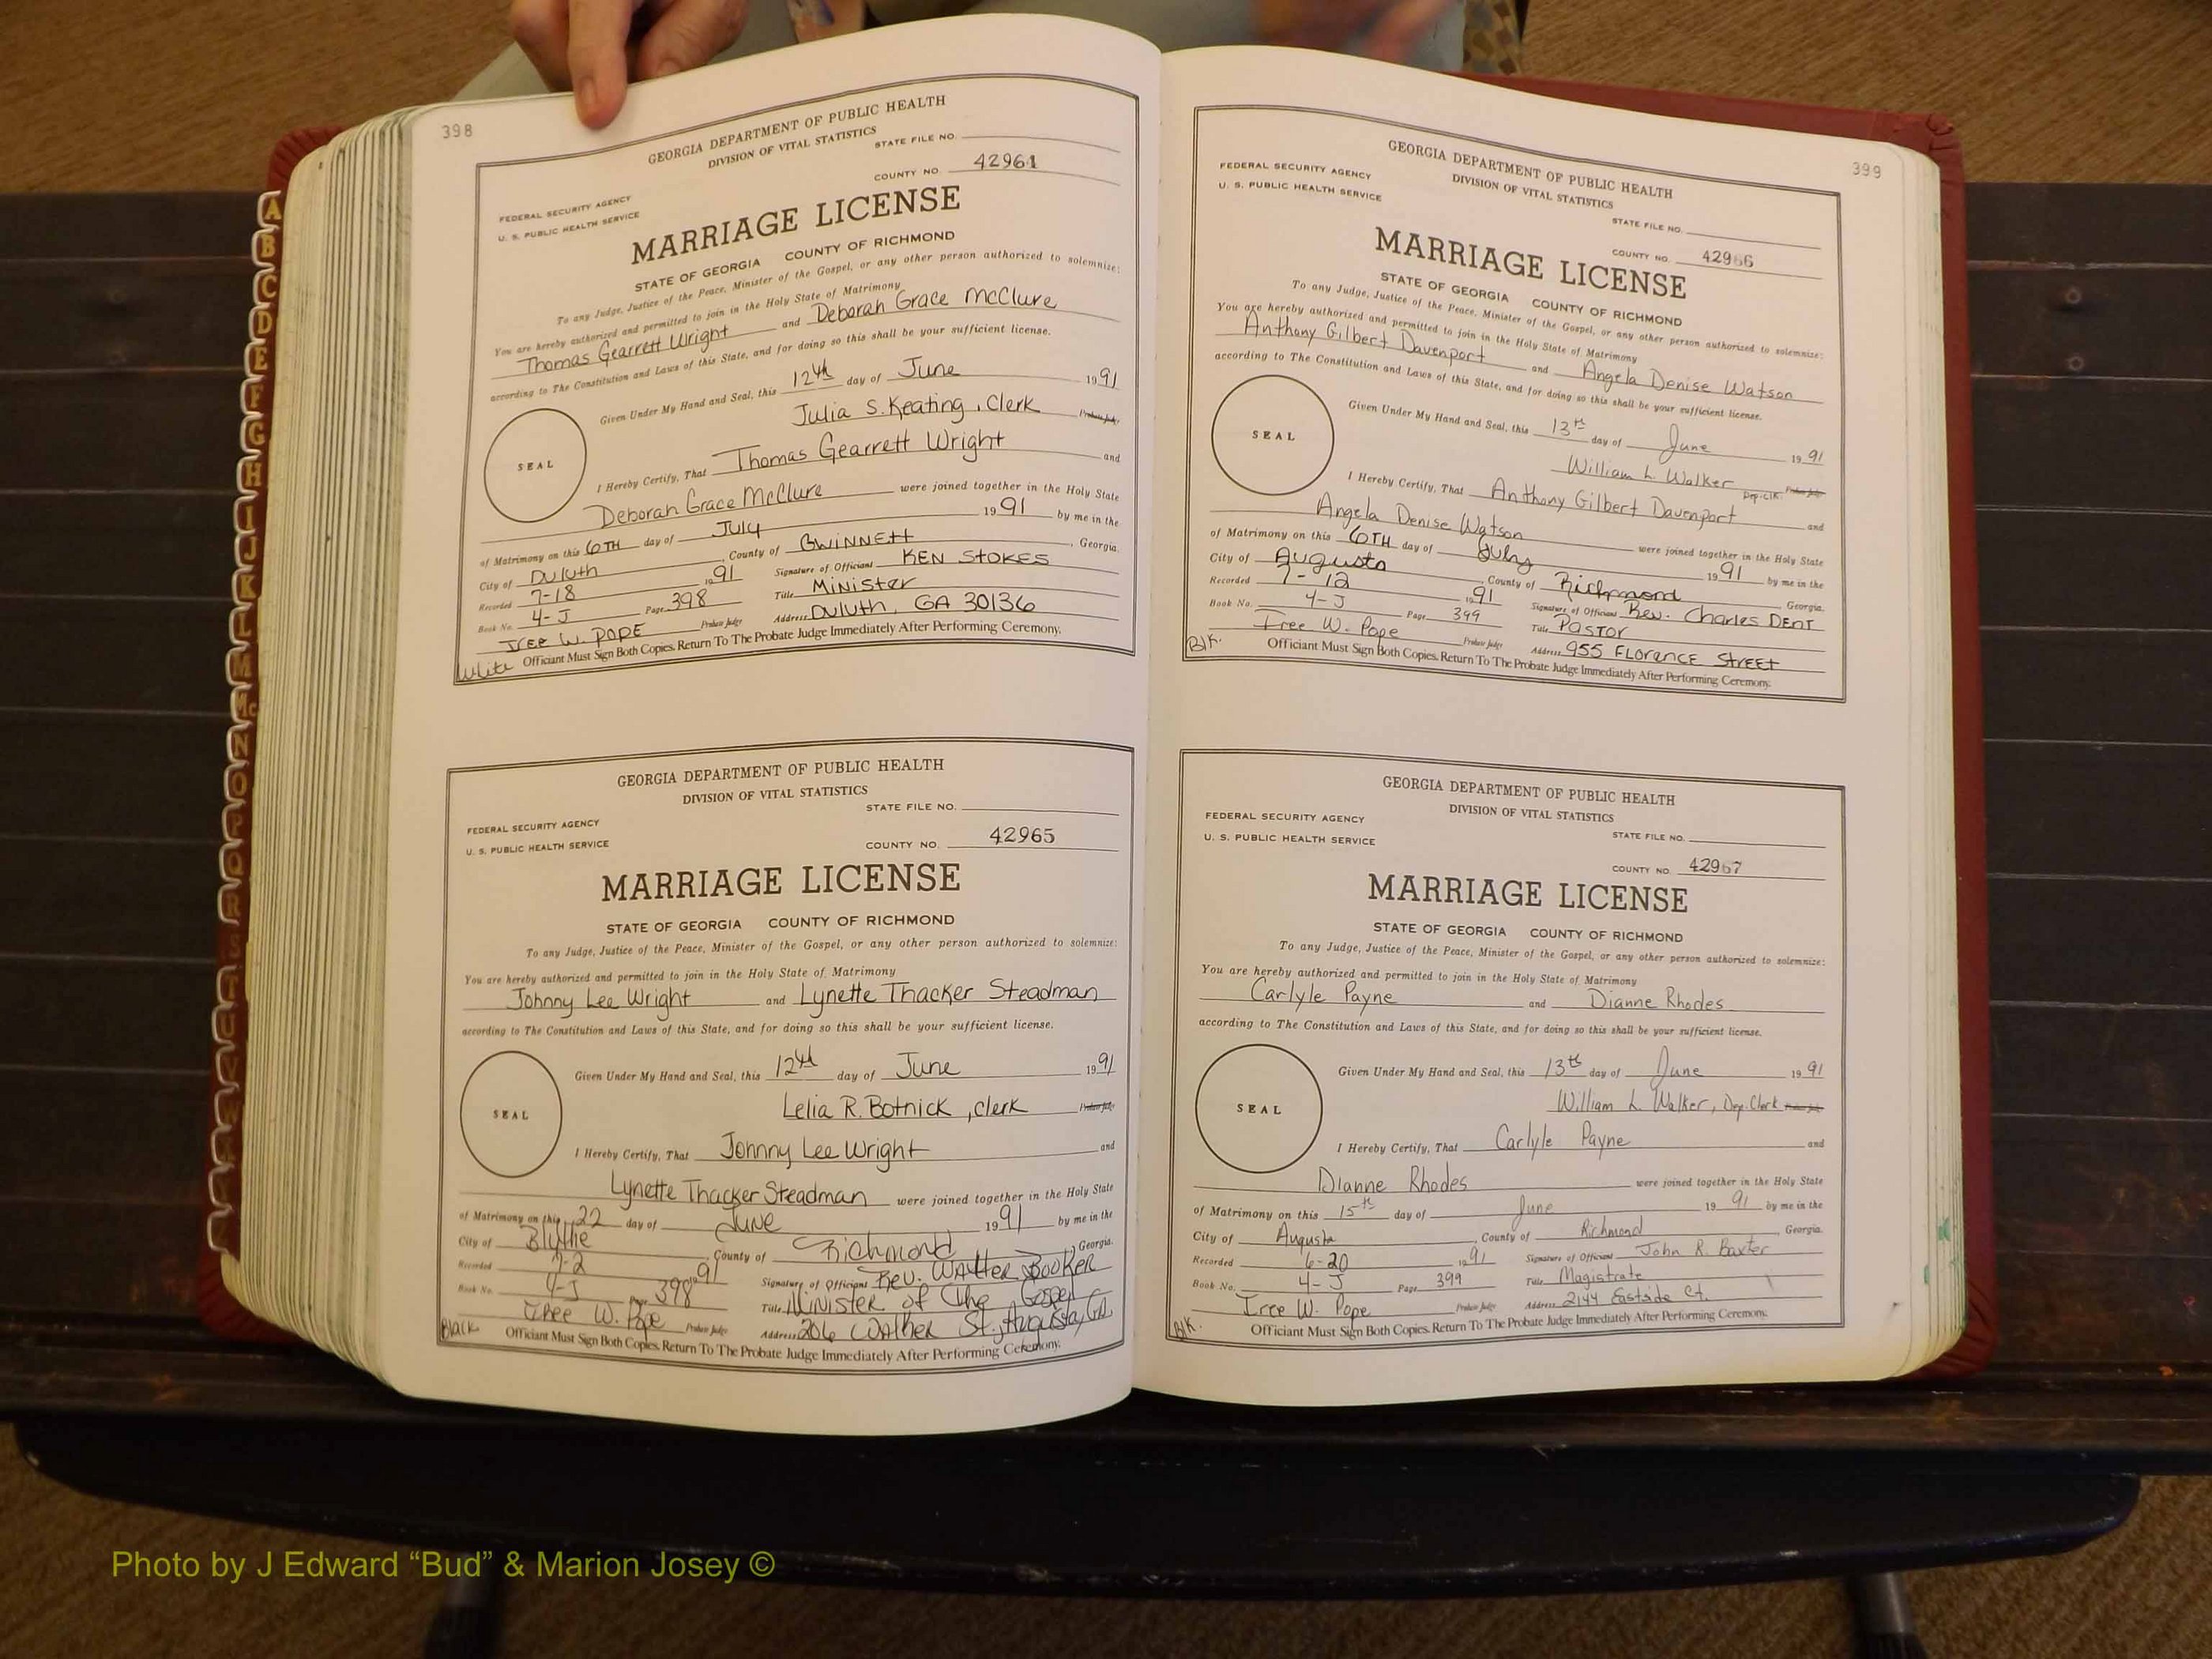 398
GEORGIA DEPARTMENT OF PUBLIC HEALTH
DIVISION OF VITAL STATISTICS
STATE FILE NO.
FEDERAL SECURITY AGENCY
U. S. PUBLIC HEALTH SERVICE
COUNTY NO. 42961
MARRIAGE LICENSE
STATE OF GEORGIA COUNTY OF RICHMOND
To any Judge, Justice of the Peace, Minister of the Gospel, or any other person authorized to solemnize:
You are hereby authorized and permitted to join in the Holy State of Matrimony
Thomas Gearrett Wright and Deborah Grace McClure
according to The Constitution and Laws of this State, and for doing so this shall be your sufficient license.
Given Under My Hand and Seal, this 12th day of June 1991
Julia S. Keating, Clerk Probate Judge
SEAL
I Hereby Certify, That Thomas Gearrett Wright and
Deborah Grace McClure were joined together in the Holy State
of Matrimony on this 6TH day of July 1991 by me in the
City of Duluth, County of GWINNETT, Georgia.
Recorded 7-18 1991 Signature of Officiant KEN STOKES
Book No. 4-J Page 398 Title Minister
IREE W. POPE Probate Judge Address Duluth, GA 30136
White Officiant Must Sign Both Copies. Return To The Probate Judge Immediately After Performing Ceremony.
GEORGIA DEPARTMENT OF PUBLIC HEALTH
DIVISION OF VITAL STATISTICS
STATE FILE NO.
FEDERAL SECURITY AGENCY
U. S. PUBLIC HEALTH SERVICE
COUNTY NO. 42965
MARRIAGE LICENSE
STATE OF GEORGIA COUNTY OF RICHMOND
To any Judge, Justice of the Peace, Minister of the Gospel, or any other person authorized to solemnize:
You are hereby authorized and permitted to join in the Holy State of Matrimony
Johnny Lee Wright and Lynette Thacker Steadman
according to The Constitution and Laws of this State, and for doing so this shall be your sufficient license.
Given Under My Hand and Seal, this 12th day of June 1991
Lelia R. Botnick, clerk Probate Judge
SEAL
I Hereby Certify, That Johnny Lee Wright and
Lynette Thacker Steadman were joined together in the Holy State
of Matrimony on this 22 day of June 1991 by me in the
City of Blythe, County of Richmond, Georgia.
Recorded 7-2 1991 Signature of Officiant Rev. Walter Booker
Book No. 4-J Page 398 Title Minister of The Gospel
Iree W. Pope Probate Judge Address 206 Walker St., Augusta, GA
Black Officiant Must Sign Both Copies. Return To The Probate Judge Immediately After Performing Ceremony.
399
GEORGIA DEPARTMENT OF PUBLIC HEALTH
DIVISION OF VITAL STATISTICS
FEDERAL SECURITY AGENCY
U. S. PUBLIC HEALTH SERVICE
STATE FILE NO.
COUNTY NO. 42966
MARRIAGE LICENSE
STATE OF GEORGIA COUNTY OF RICHMOND
To any Judge, Justice of the Peace, Minister of the Gospel, or any other person authorized to solemnize:
You are hereby authorized and permitted to join in the Holy State of Matrimony
Anthony Gilbert Davenport and Angela Denise Watson
according to The Constitution and Laws of this State, and for doing so this shall be your sufficient license.
Given Under My Hand and Seal, this 13th day of June 1991
William L. Walker Dep. Clk. Probate Judge
SEAL
I Hereby Certify, That Anthony Gilbert Davenport and
Angela Denise Watson were joined together in the Holy State
of Matrimony on this 6TH day of July 1991 by me in the
City of Augusta, County of Richmond Georgia.
Recorded 7-12 1991 Signature of Officiant Rev. Charles Dent
Book No. 4-J Page 399 Title Pastor
Iree W. Pope Probate Judge Address 955 Florence Street
Blk. Officiant Must Sign Both Copies. Return To The Probate Judge Immediately After Performing Ceremony.
GEORGIA DEPARTMENT OF PUBLIC HEALTH
DIVISION OF VITAL STATISTICS
FEDERAL SECURITY AGENCY
U. S. PUBLIC HEALTH SERVICE
STATE FILE NO.
COUNTY NO. 42967
MARRIAGE LICENSE
STATE OF GEORGIA COUNTY OF RICHMOND
To any Judge, Justice of the Peace, Minister of the Gospel, or any other person authorized to solemnize:
You are hereby authorized and permitted to join in the Holy State of Matrimony
Carlyle Payne and Dianne Rhodes
according to The Constitution and Laws of this State, and for doing so this shall be your sufficient license.
Given Under My Hand and Seal, this 13th day of June 1991
William L. Walker, Dep. Clerk Probate Judge
SEAL
I Hereby Certify, That Carlyle Payne and
Dianne Rhodes were joined together in the Holy State
of Matrimony on this 15th day of June 1991 by me in the
City of Augusta, County of Richmond, Georgia.
Recorded 6-20 1991 Signature of Officiant John R. Baxter
Book No. 4-J Page 399 Title Magistrate
Iree W. Pope Probate Judge Address 2144 Eastside Ct.
Blk. Officiant Must Sign Both Copies. Return To The Probate Judge Immediately After Performing Ceremony.
A
B
C
D
E
F
G
H
I
J
K
L
M
Mc
N
O
P
Q
R
S
T
U
V
W
Photo by J Edward “Bud” & Marion Josey ©